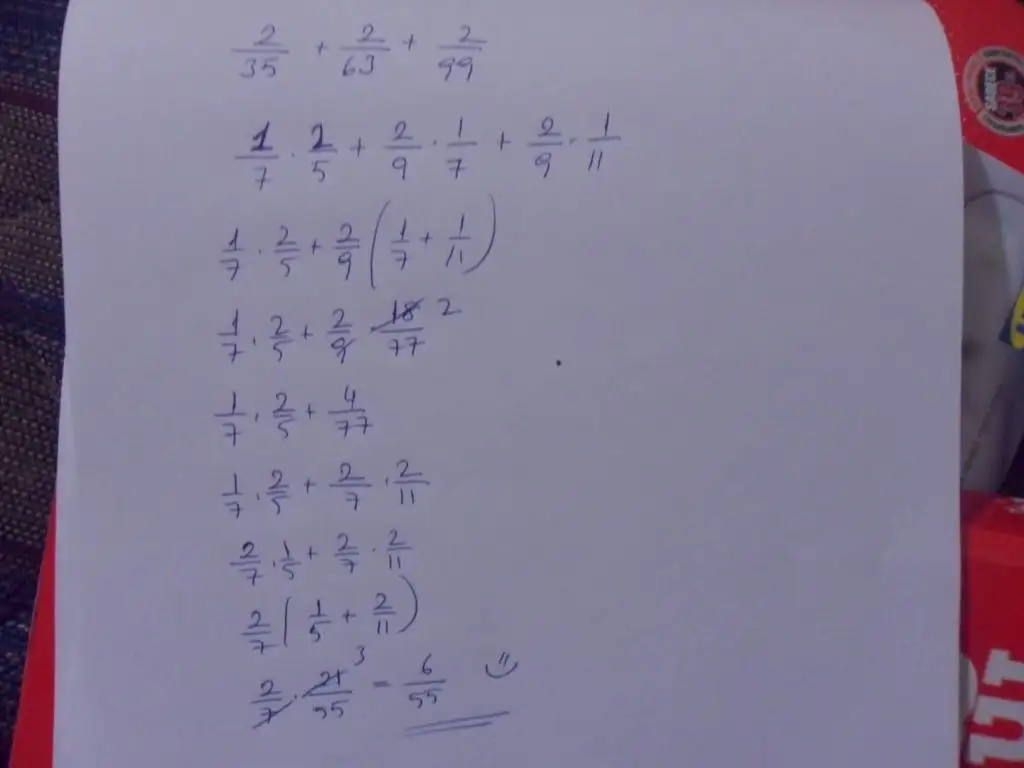 2/35 + 2/63 + 2/99
1/7 · 2/5 + 2/9 · 1/7 + 2/9 · 1/11
1/7 · 2/5 + 2/9 (1/7 + 1/11)
1/7 · 2/5 + 2/9 · 18/77 2
1/7 · 2/5 + 4/77
1/7 · 2/5 + 2/7 · 2/11
2/7 · 1/5 + 2/7 · 2/11
2/7 (1/5 + 2/11)
2/7 · 21/55 3 = 6/55